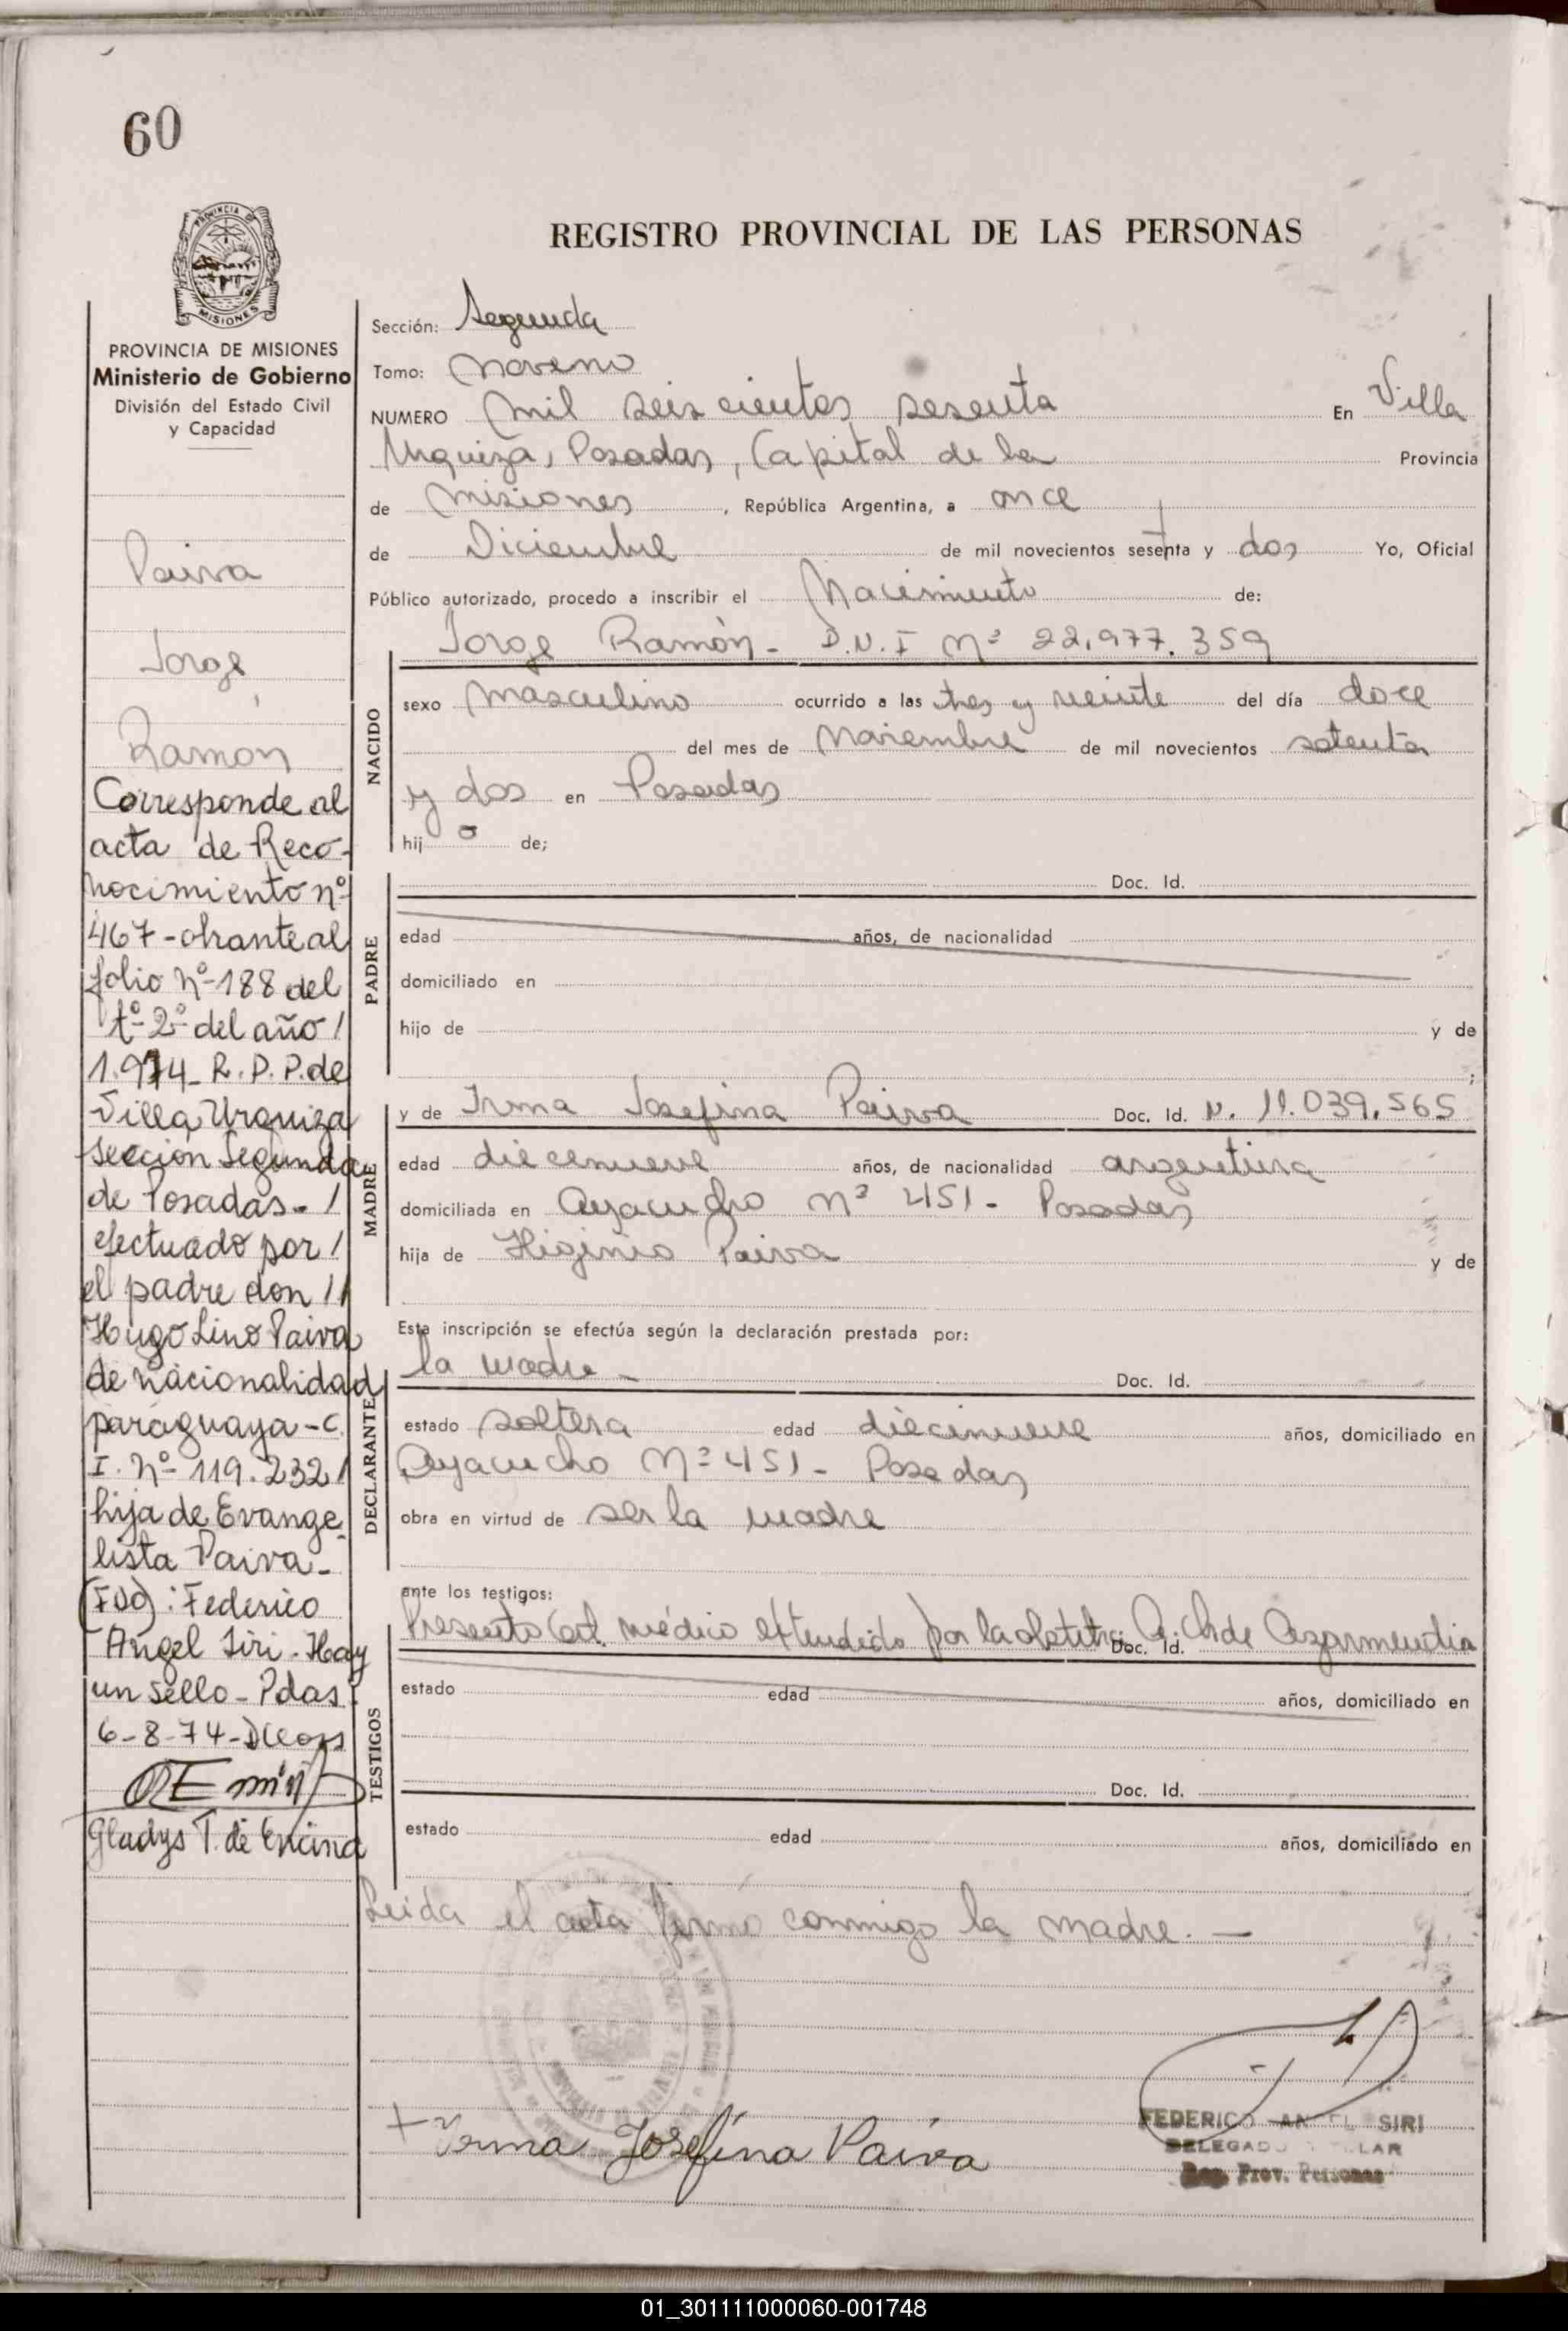 60
PROVINCIA DE
MISIONES
REGISTRO PROVINCIAL DE LAS PERSONAS
PROVINCIA DE MISIONES
Ministerio de Gobierno
División del Estado Civil
y Capacidad
Paiva
Jorge
Ramón
Corresponde al
acta de Reco-
nocimiento nº
467-obrante al
folio nº-188 del
tº-2º del año /
1.974- R. P. P. de
Villa Urquiza
sección Segunda
de Posadas- /
efectuado por /
el padre don //
Hugo Lino Paiva
de nacionalidad
paraguaya-C.
I. nº-119.232 /
hija de Evange-
lista Paiva-
(Fdo): Federico
Angel Siri-Hay
un sello-Pdas
6-8-74-
Gladys T. de Encina
Sección: Segunda
Tomo: Noveno
NUMERO Mil seis cientos sesenta En Villa
Urquiza, Posadas, Capital de la Provincia
de Misiones, República Argentina, a once
de Diciembre de mil novecientos sesenta y dos Yo, Oficial
Público autorizado, procedo a inscribir el Nacimiento de:
Jorge Ramón- D.N.I Nº 22.977.359
NACIDO
sexo Masculino ocurrido a las tres y veinte del día doce
del mes de Noviembre de mil novecientos setenta
y dos en Posadas
hijo de;
PADRE
Doc. Id.
edad años, de nacionalidad
domiciliado en
hijo de y de
;
MADRE
y de Irma Josefina Paiva Doc. Id. N. 11.039.565
edad diecenueve años, de nacionalidad argentina
domiciliada en Ayacucho Nº 451- Posadas
hija de Higinio Paiva y de
Esta inscripción se efectúa según la declaración prestada por:
DECLARANTE
la madre- Doc. Id.
estado soltera edad diecinueve años, domiciliado en
Ayacucho Nº 451- Posadas
obra en virtud de ser la madre
ante los testigos:
TESTIGOS
Presento Cert. médico extendido por la obstetra Doc. Id. A. Ch de Azarmendia
estado edad años, domiciliado en
Doc. Id.
estado edad años, domiciliado en
Leida el acta firmó conmigo la madre.-
Irma Josefina Paiva
FEDERICO ANGEL SIRI
DELEGADO TITULAR
Reg. Prov. Personas
01_301111000060-001748